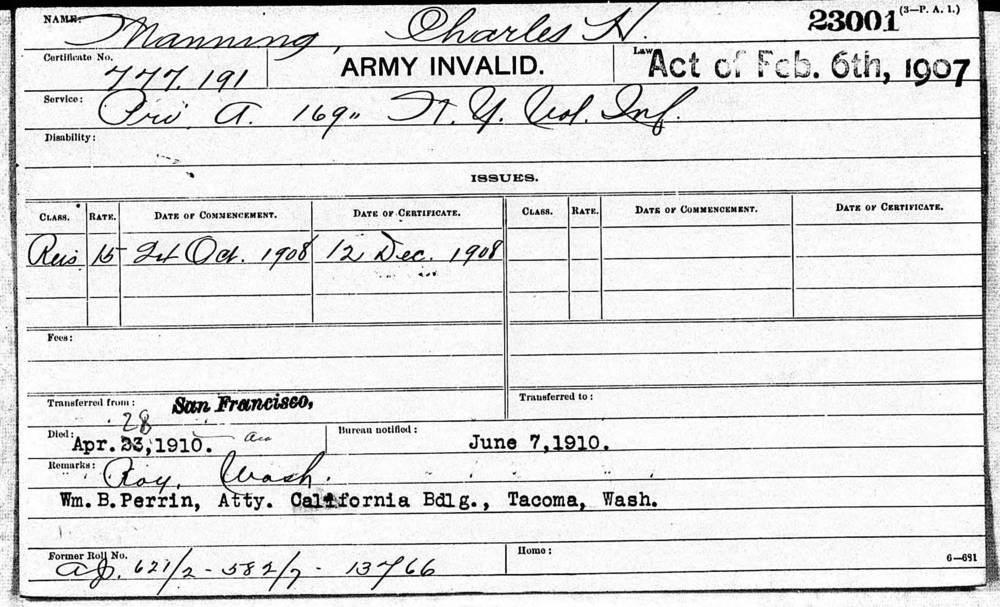 NAME: Manning, Charles H. 23001 (3—P. A. 1.)
Certificate No. 777.191 ARMY INVALID. Law Act of Feb. 6th, 1907
Service: Priv A. 169" N. Y. Vol. Inf.
Disability:
ISSUES.
CLASS. RATE. DATE OF COMMENCEMENT. DATE OF CERTIFICATE. CLASS. RATE. DATE OF COMMENCEMENT. DATE OF CERTIFICATE.
Reis 15 Oct. 1908 12 Dec. 1908
Fees:
Transferred from: San Francisco, Transferred to:
28
Died: Apr. 23,1910. Bureau notified: June 7,1910.
Remarks: Roy, Wash.
Wm. B. Perrin, Atty. California Bdlg., Tacoma, Wash.
Former Roll No. 621/2 - 582/7 - 13766 Home: 6—681